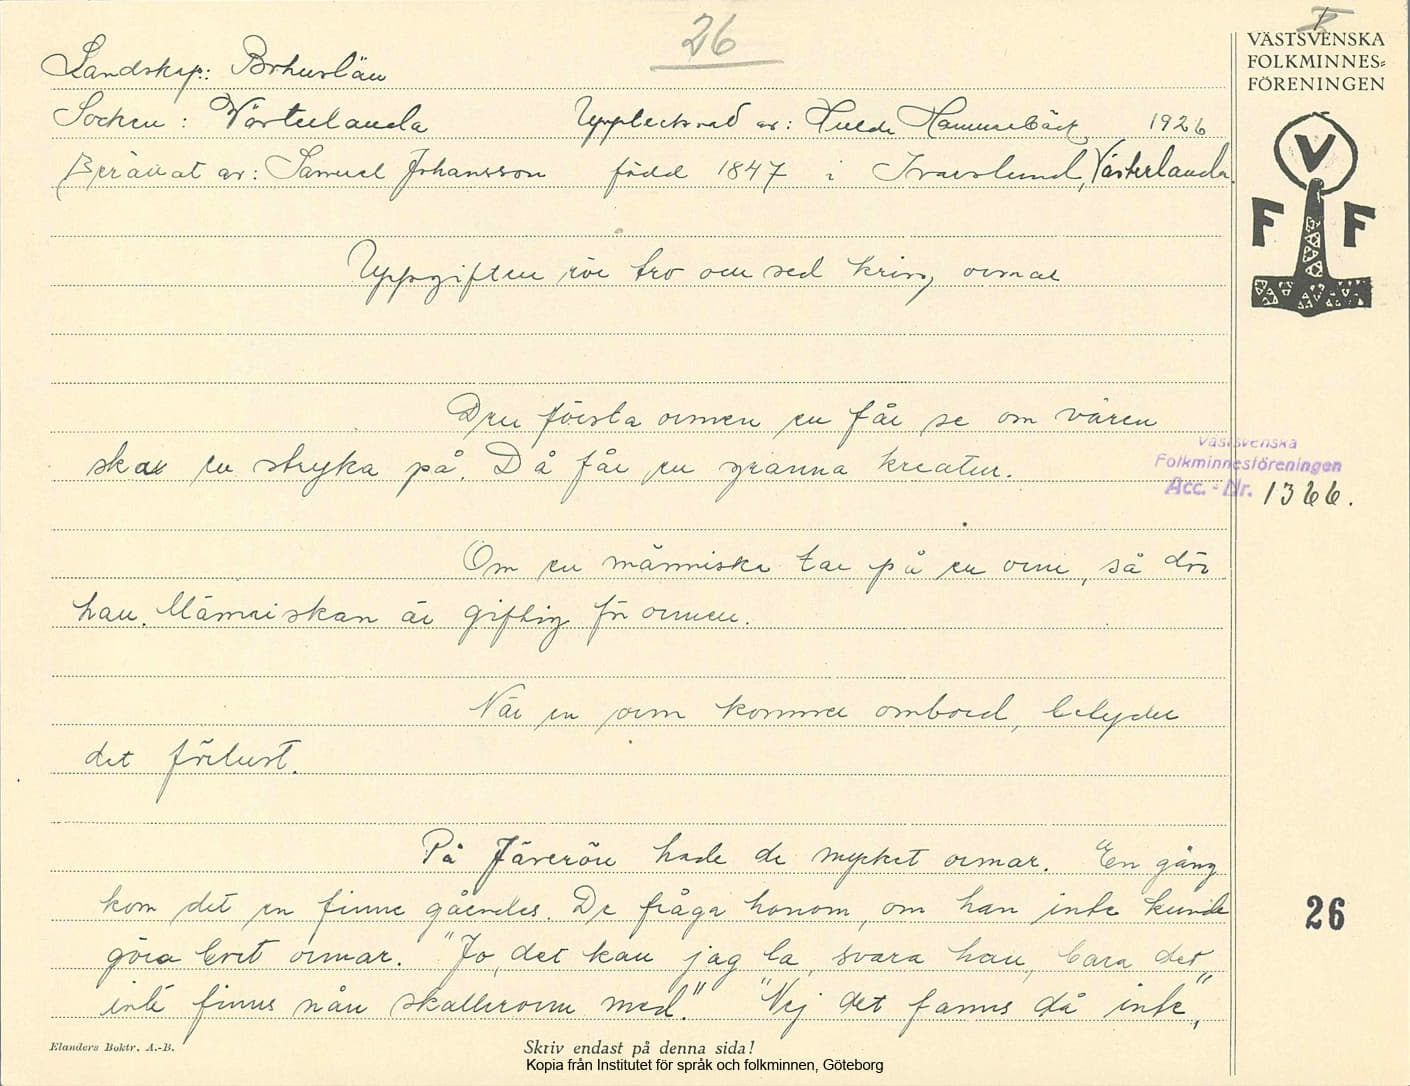 26
V
VÄSTSVENSKA
FOLKMINNES-
FÖRENINGEN
Landskap: Bohuslän
Socken: Västerlanda Upptecknad av: Hulda Hammarbäck 1926
Berättat av: Samuel Johansson född 1847 i Ivarslund, Västerlanda.
V
F F
Uppgiften rör tro och sed kring ormar
Den första ormen en får se om våren
ska en stryka på. Då får en granna kreatur.
Västsvenska
Folkminnesföreningen
Acc.-Nr. 1366.
Om en människa tar på en orm, så dör
han. Människan är giftig för ormen.
När en orm kommer ombord, betyder
det förlust.
På hade de mycket ormar. En gång
kom det en finne gåendes. De fråga honom, om han inte kunde
göra bort ormar. "Jo, det kan jag la, svara han, bara det
inte finns nån skallerorm med." "Nej det fanns då inte,"
26
Elanders Boktr. A.-B.
Skriv endast på denna sida!
Kopia från Institutet för språk och folkminnen, Göteborg